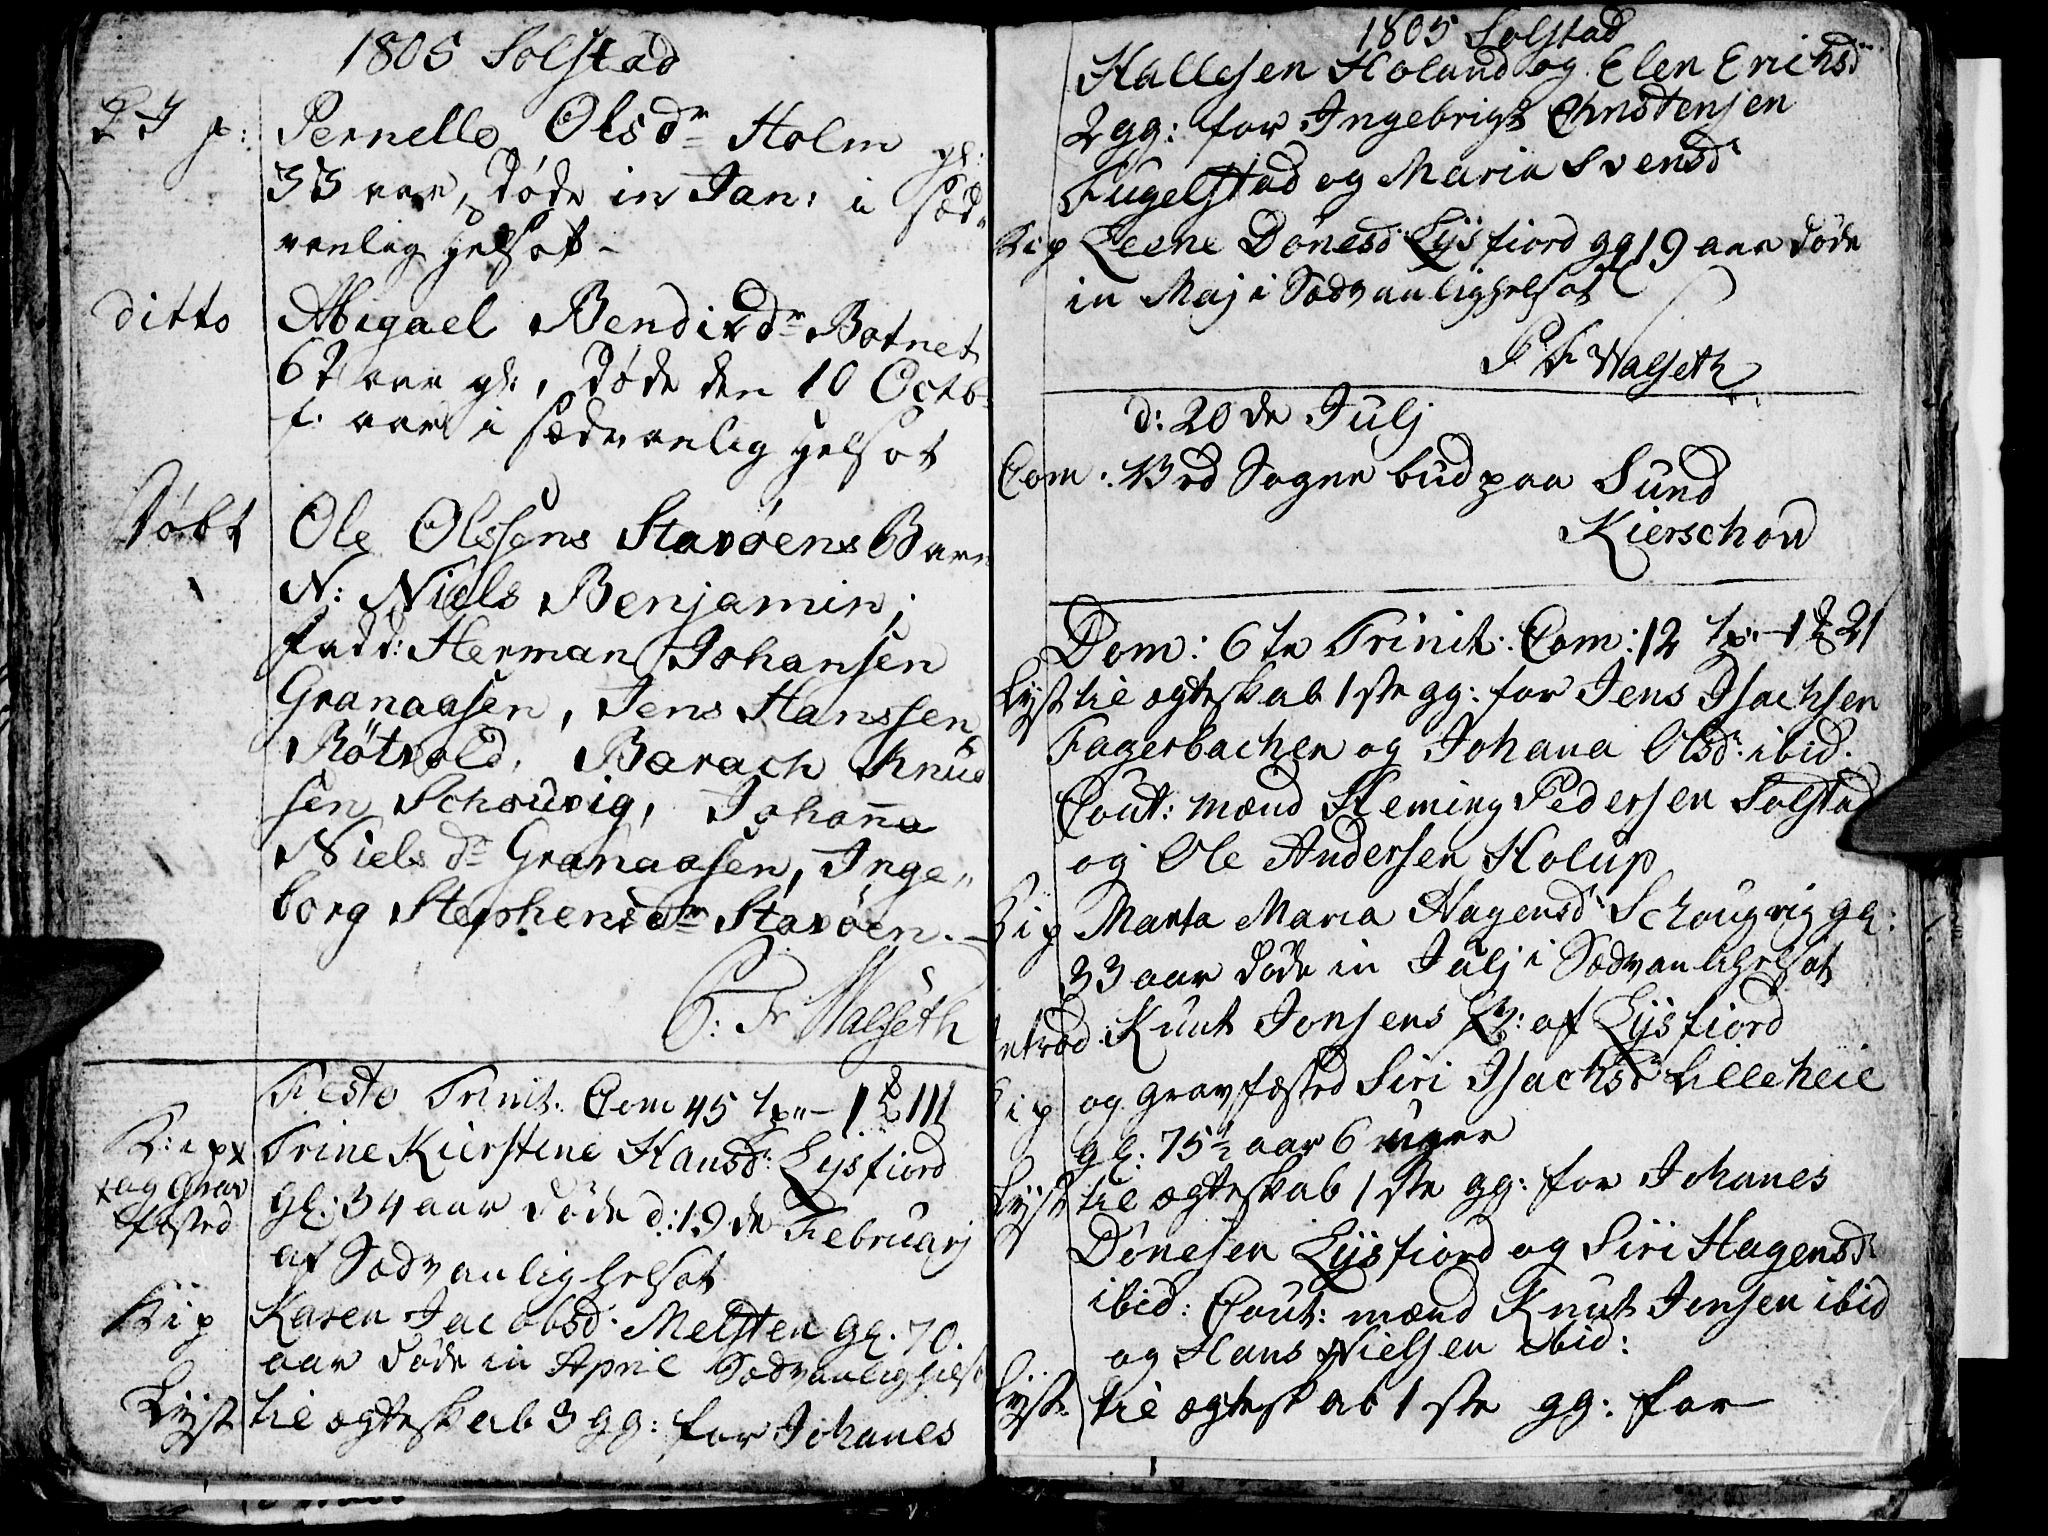 1805 Solstad
J p: Pernelle Olsdr Holm gl:
33 aar, døde in Jan: i sæd-
vanlig helsot -
ditto Abigael Bendixdr Botnet
62 aar gl:, døde den 10 Octb.
f. aar i sædvanlig helsot
Døbt Ole Olssøns Stavøens Barn
N: Niels Benjamin;
Fadd: Herman Johansen
Granaasen, Jens Hanssen
Røtvold, Barach Knud
sen Schouvig, Johanna
Nielsdr Granaasen, Inge-
borg Stephensdr Stavøen.
P: Fr Walseth
Festo Trinit. Com 45 tp - 1 # 111
K: i p x Trine Kierstine Hansd: Lysfiord
x og Grav gl: 34 aar døde d: 19 de Februarj
fæsted af Sædvanlig helsot
K i p Karen Jacobsd. Melsten gl. 70.
aar døde in April Sædvanlig helsot
Lyst til ægteskab 3 gg: for Johanes
1805 Solstad
Hallesen Holand og Elen Erichsd
2 gg: for Ingebrigt Christensen
Fugelstad og Maria Svensd
K i p Leene Dônesd Lysfiord gl 19 aar døde
in Maj i Sædvanlig helsot
P F Walseth
d: 20 de Julj
Com: 13 ved Sognebud paa Sund
Kierschow
Dom: 6 te Trinit: Com: 12 tp - 1 # 21
Lyst til ægteskab 1 ste gg: for Jens Isachsen
Fagerbachen og Johana Olsd: ibid.
Cout: mænd Fleming Pedersen Solstad
og Ole Andersen Holup
K i p Marta Maria Hagensd Schougvig gl:
33 aar døde in Julj i Sædvanlihelsot
introd: Knut Jonsens H: af Lysfiord
K i p og gravfæsted Siri Isachsd Lilleheie
gl: 75 1/2 aar 6 uger
Lyst til ægteskab 1 ste gg: for Johanes
Dônesen Lysfiord og Siri Hagensd:
ibid: Cout: mænd Knut Jensen ibid
og Hans Nielsen ibid:
Lyst. til ægteskab 1 ste gg: for